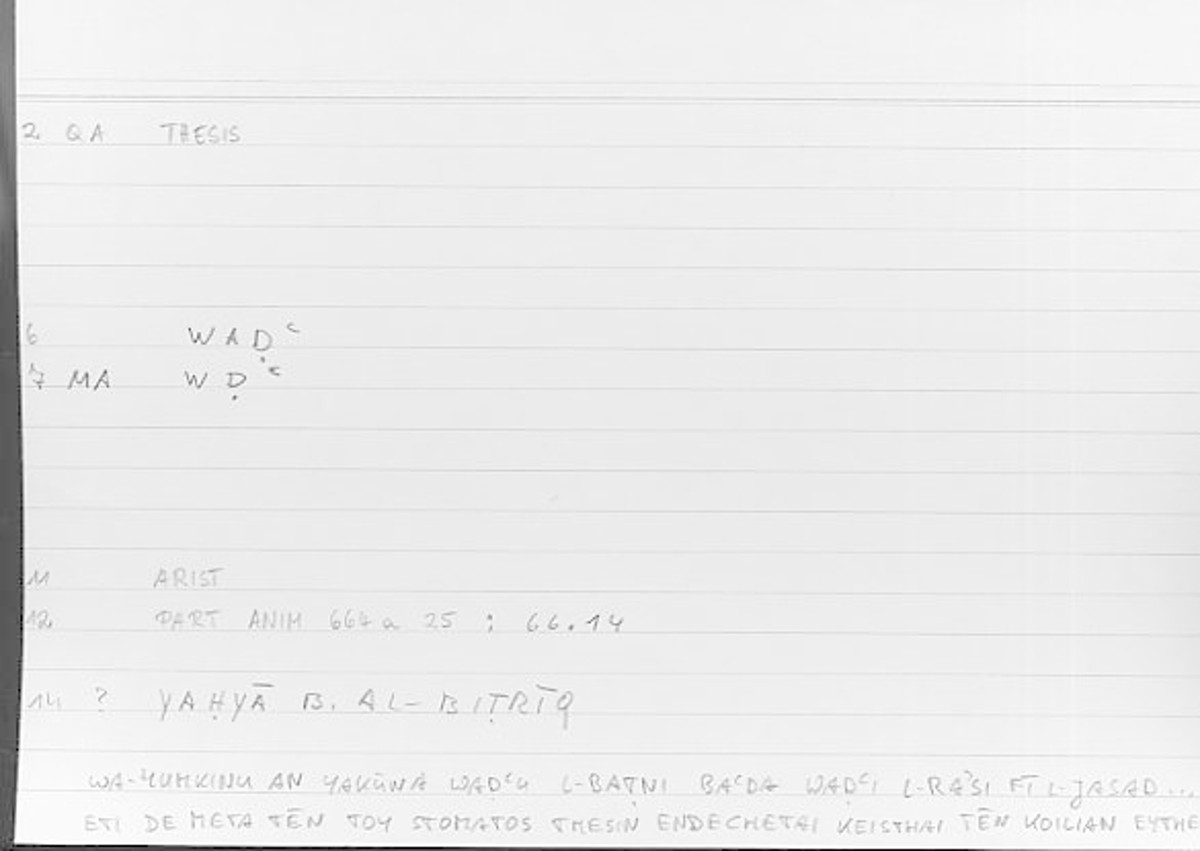 2 QA THESIS
6 WAḌᶜ
7 MA WḌᶜ
11 ARIST
12 PART ANIM 664 a 25 ; 66.14
14 ? YAḤYĀ B. AL-BIṬRĪQ
WA-YUMKINU AN YAKŪNA WAḌᶜU L-BAṬNI BAᶜDA WAḌᶜI L-RAʾSI FĪ L-JASAD...
ETI DE META TĒN TOY STOMATOS THESIN ENDECHETAI KEISTHAI TĒN KOILIAN EYTHE